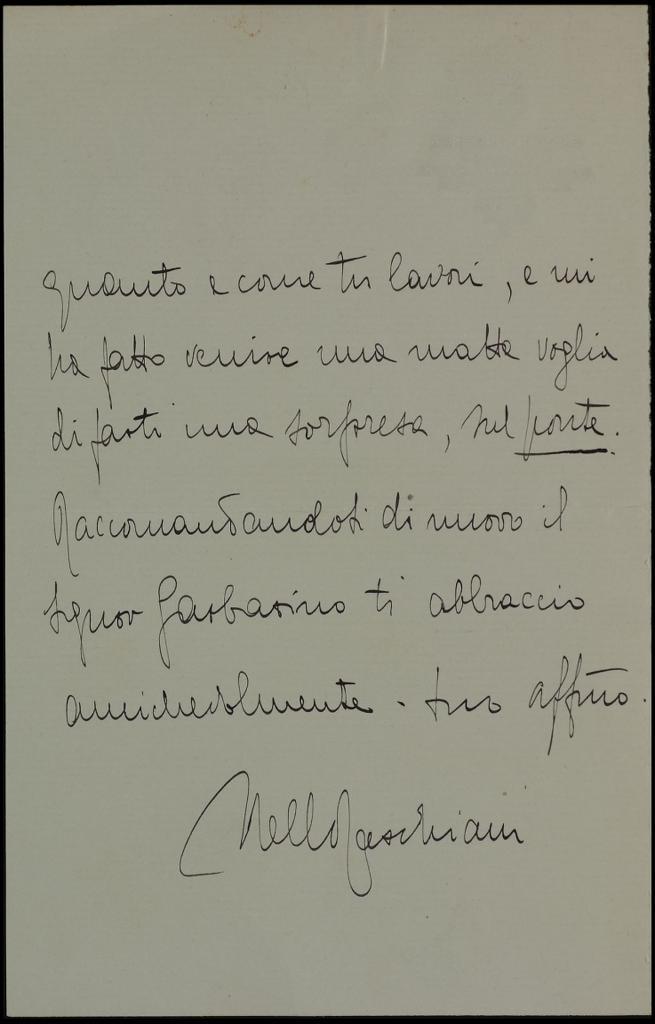 quanto e come tu lavori, e mi
ha fatto venire una matta voglia
di farti una sorpresa, sul ponte.
Raccomandandoti di nuovo il
signor Garbarino ti abbraccio
amichevolmente - tuo affmo.
Nello